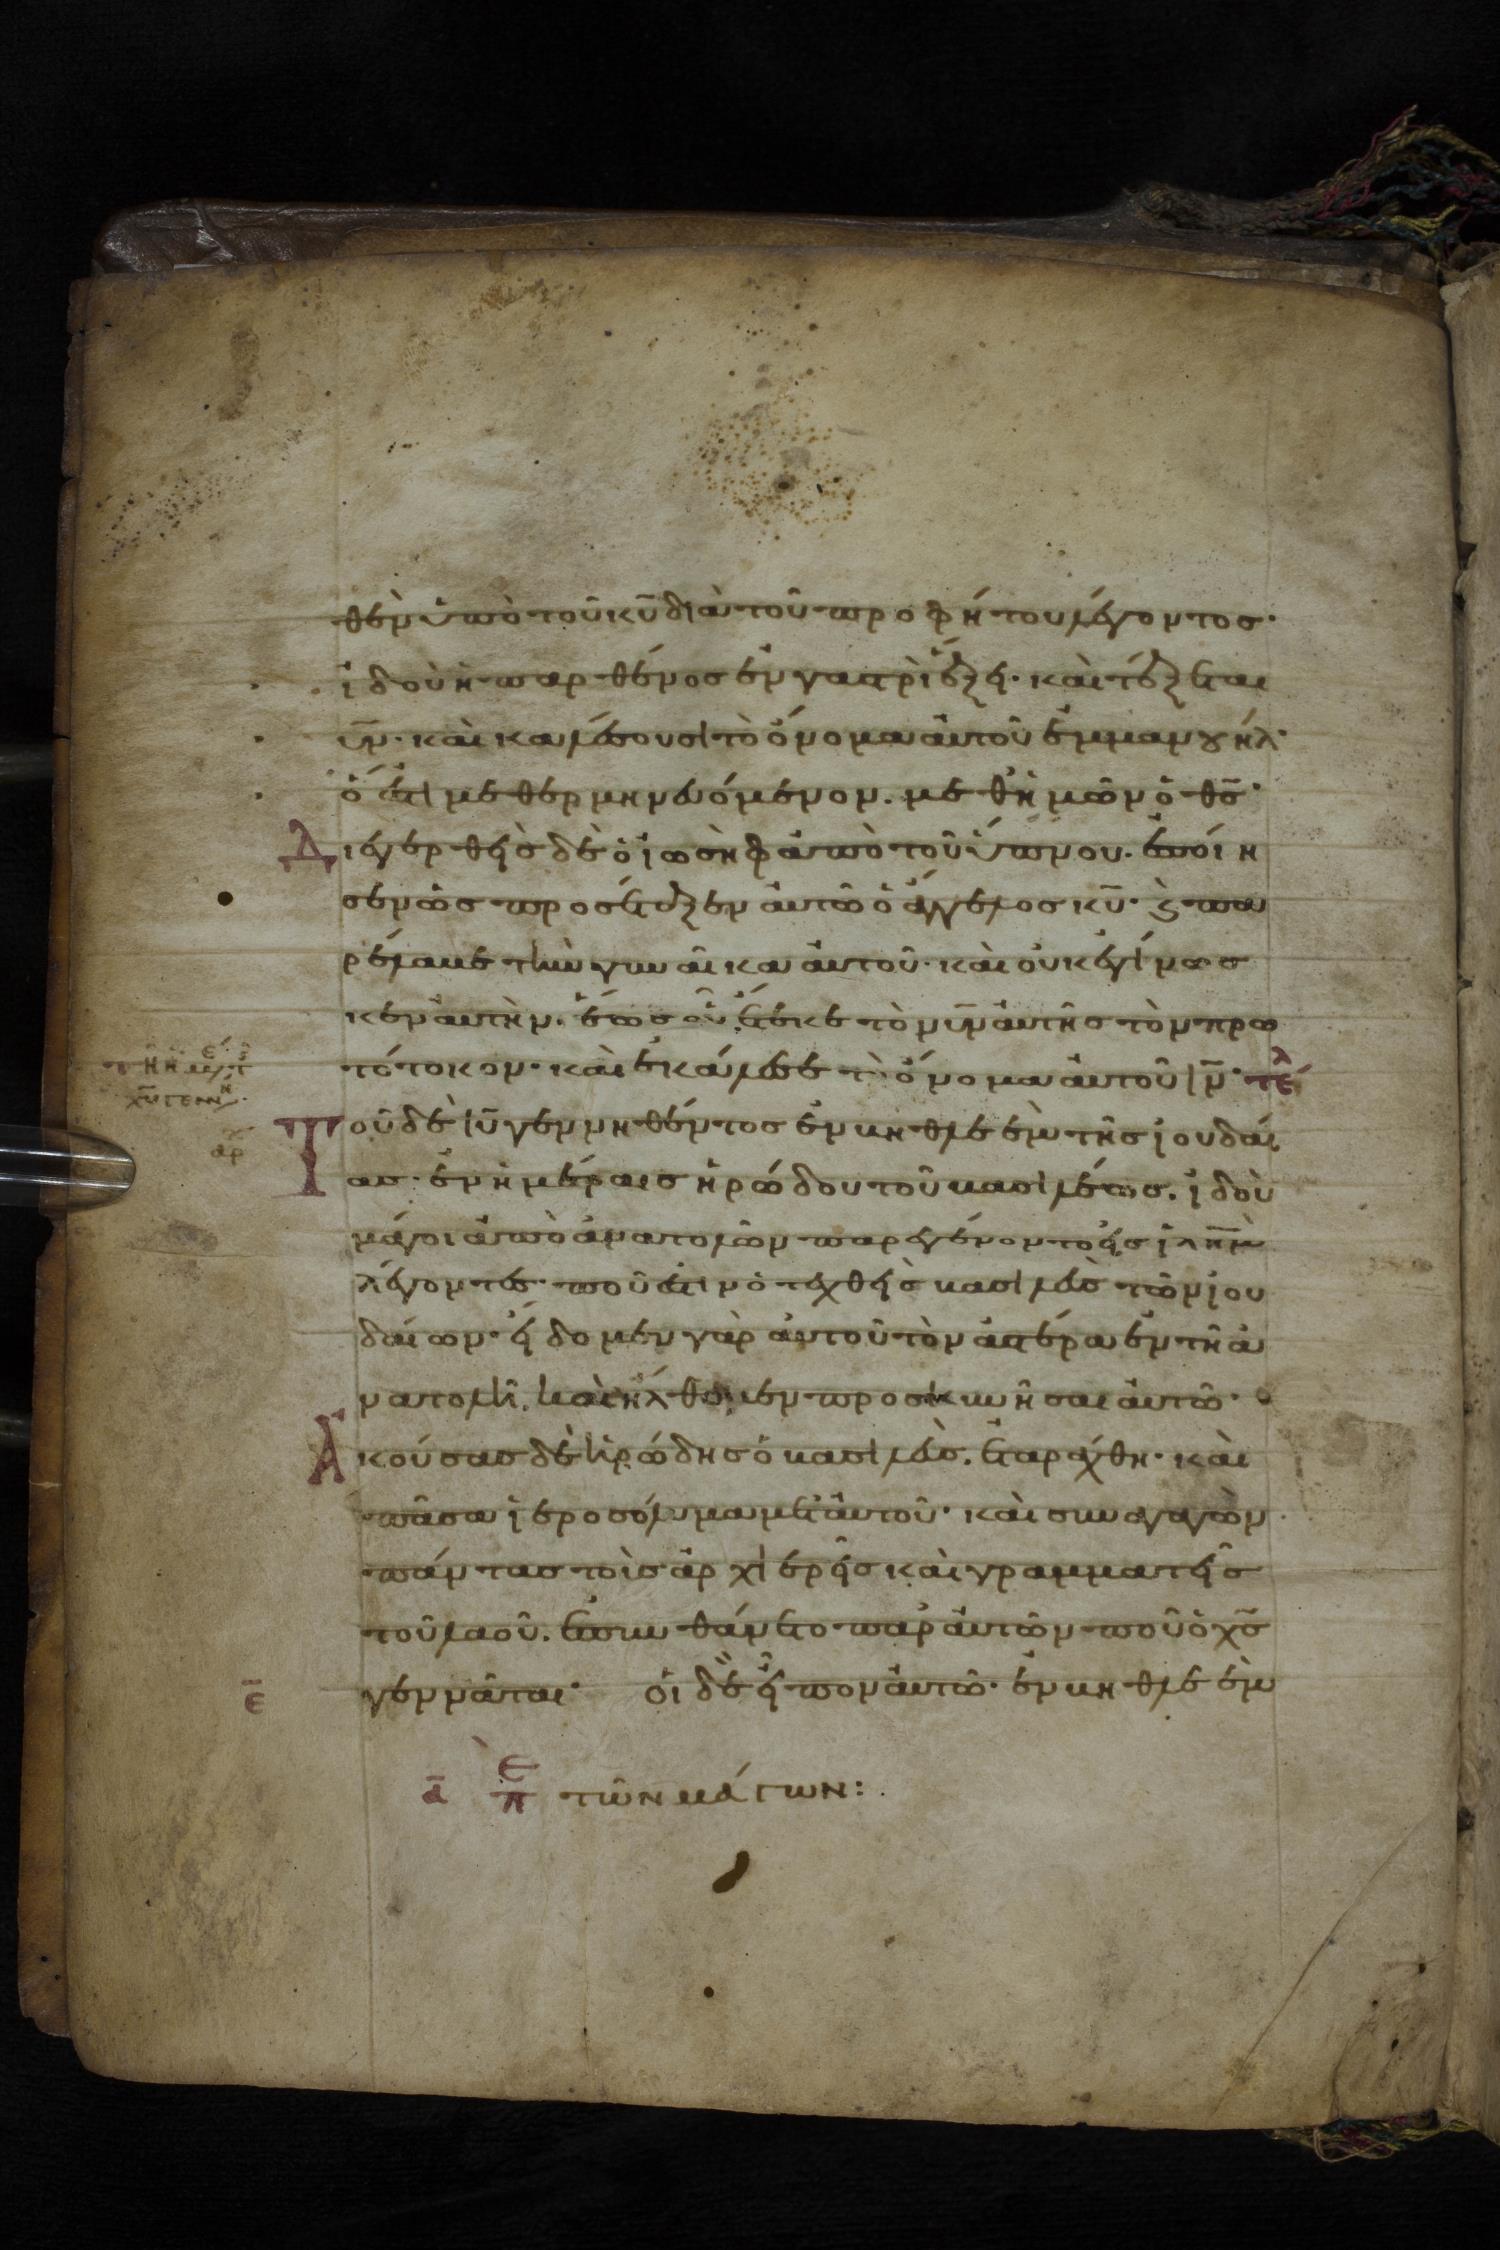 θὲν ὑπὸ τοῦ κῡ διὰ τοῦ προφήτου λέγοντος·
ἰδοὺ ἡ παρθένος ἐν γαστρὶ ἕξει· καὶ τέξεται
ῡν· καὶ καλέσουσι τὸ ὄνομα αὐτοῦ ἐμμανουήλ·
ὅ ἐστι μεθερμηνευόμενον. μεθ' ἡμῶν ὁ θς̄·
Διεγερθεὶς δὲ ὁ ἰωσὴφ ἀπὸ τοῦ ὕπνου. ἐποίη
σεν ὡς προσέταξεν αὐτῶ ὁ ἄγγελος κῡ· ϗ πα
ρέλαβε τὴν γυναῖκα αὐτοῦ· καὶ οὐκ ἐγίνωσ
κεν αὐτὴν. ἕως οὗ ἔτεκε τὸν ῡν αὐτῆς τὸν πρω
τότοκον· καὶ ἐκάλεσε τὸ ὄνομα αὐτοῦ ῑν· τέλ
Τοῦ δὲ ῑυ γεννηθέντος ἐν βηθλεὲμ τῆς ἰουδαί
ας· ἐν ἡμέραις ἡρώδου τοῦ βασιλέως. ἰδοὺ
μάγοι ἀπὸ ἀνατολῶν παρεγένοντο εἰς ἱλη̄μ
λέγοντες· ποῦ ἐστιν ὁ τεχθεὶς βασιλεὺς τῶν ἰου
δαίων· εἴδομεν γὰρ αὐτοῦ τὸν ἀστέρα ἐν τῆ ἀ
νατολῆ. καὶ ἤλθομεν προσκυνῆσαι αὐτῶ·
Ἀκούσας δὲ ἡρώδης ὁ βασιλεὺς. ἐταράχθη· καὶ
πᾶσα ἱεροσόλυμα μετ' αὐτοῦ· καὶ συναγαγὼν
πάντας τοὺς ἀρχιερεῖς καὶ γραμματεῖς
τοῦ λαοῦ. ἐπυνθάνετο παρ' αὐτῶν ποῦ ὁ χς̄
ε̄ γεννᾶται· οἱ δὲ εἶπον αὐτῶ· ἐν βηθλεὲμ
ᾱ πε τῶν μάγων: